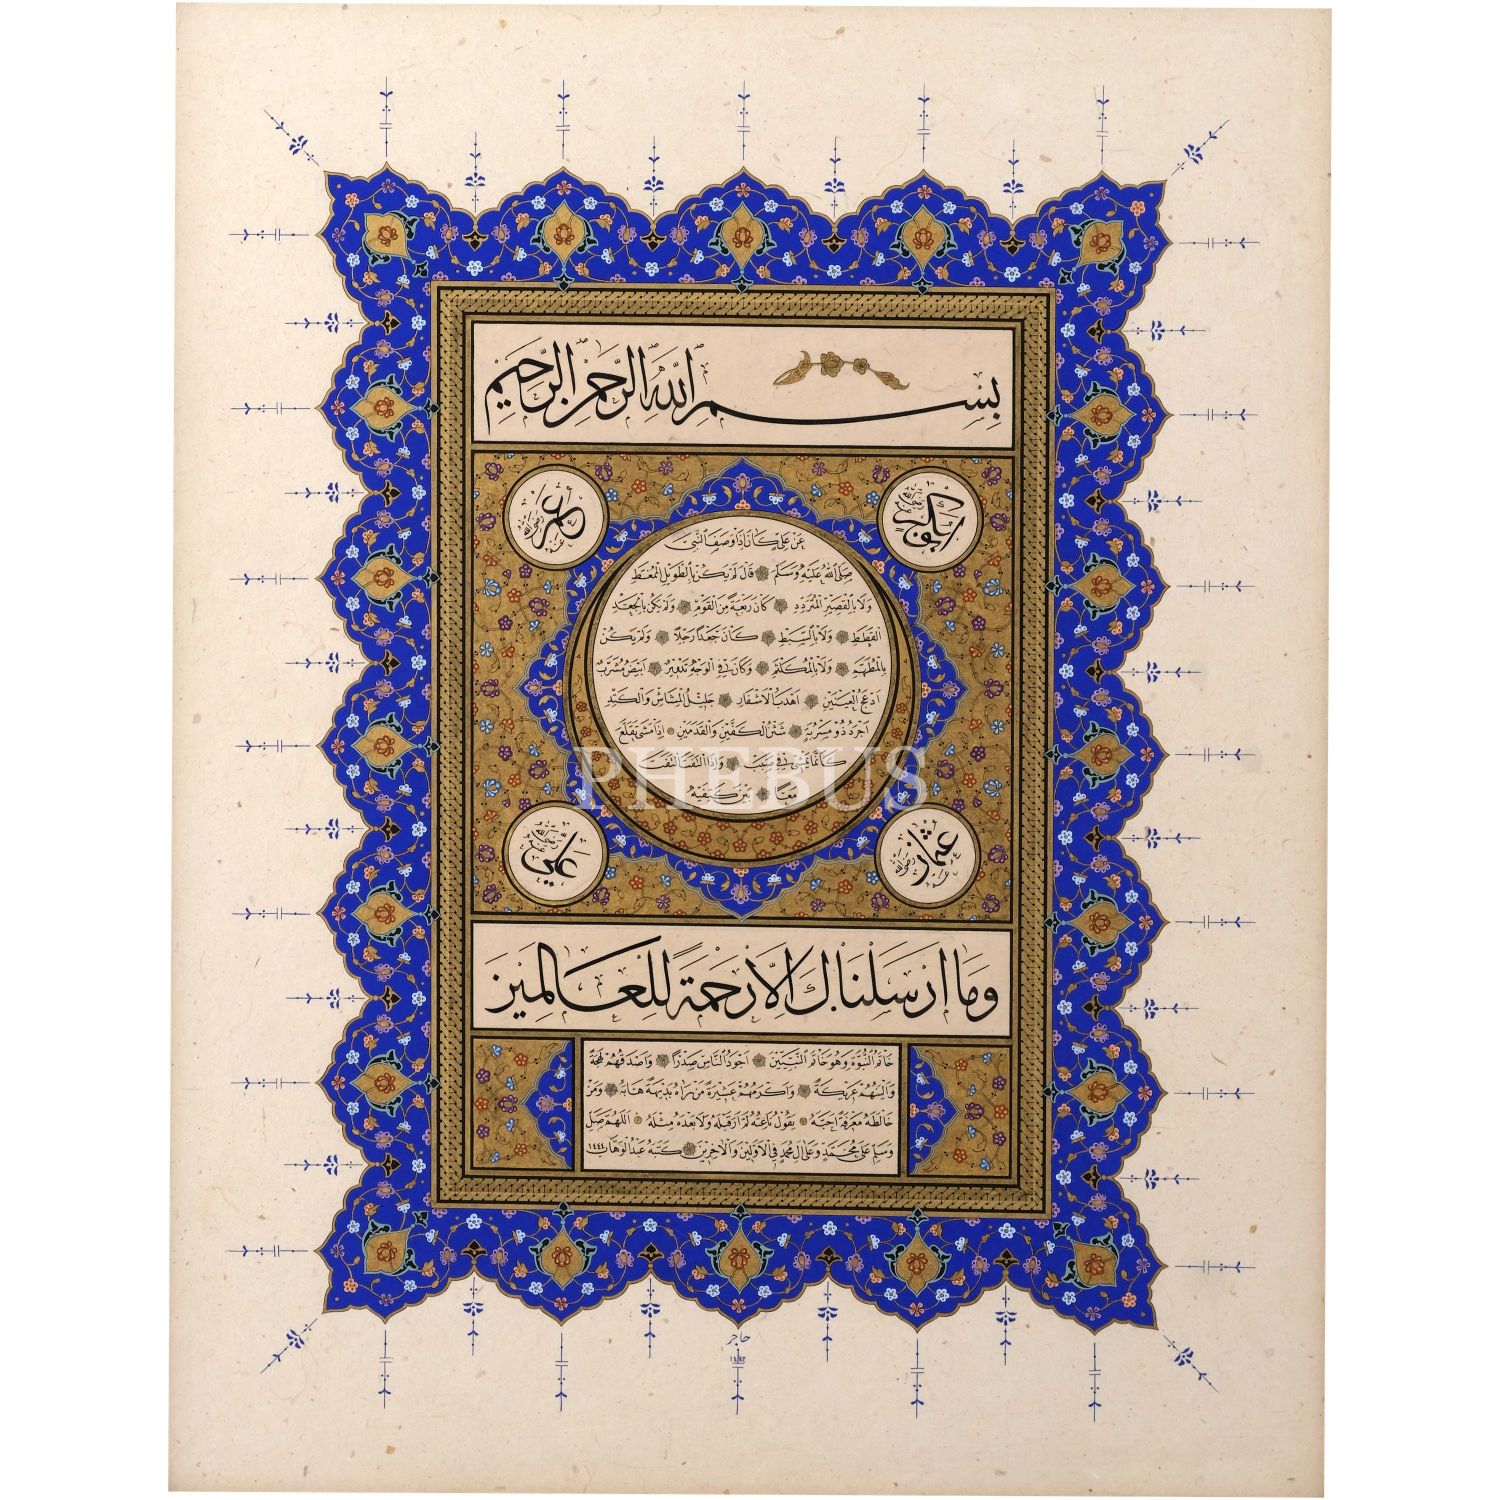 بِسْمِ اللهِ الرَّحْمٰنِ الرَّحِيمِ
ابوبكر رضي الله عنه
عمر رضي الله عنه
عَنْ عَلِيٍّ كَانَ اِذَا وَصَفَ النَّبِيَّ
صَلَّى اللهُ عَلَيْهِ وَسَلَّمَ قَالَ لَمْ يَكُنْ بِالطَّوِيلِ الْمُمَغَّطِ
وَلَا بِالْقَصِيرِ الْمُتَرَدِّدِ كَانَ رَبْعَةً مِنَ الْقَوْمِ وَلَمْ يَكُنْ بِالْجَعْدِ
الْقَطَطِ وَلَا بِالسَّبِطِ كَانَ جَعْدًا رَجِلًا وَلَمْ يَكُنْ
بِالْمُطَهَّمِ وَلَا بِالْمُكَلْثَمِ وَكَانَ فِي الْوَجْهِ تَدْوِيرٌ اَبْيَضُ مُشْرَبٌ
اَدْعَجُ الْعَيْنَيْنِ اَهْدَبُ الْاَشْفَارِ جَلِيلُ الْمُشَاشِ وَالْكَتَدِ
اَجْرَدُ ذُو مَسْرُبَةٍ شَثْنُ الْكَفَّيْنِ وَالْقَدَمَيْنِ اِذَا مَشَى تَقَلَّعَ
كَاَنَّمَا يَمْشِي فِي صَبَبٍ وَاِذَا الْتَفَتَ الْتَفَتَ
مَعًا بَيْنَ كَتِفَيْهِ
عثمان رضي الله عنه
علي رضي الله عنه
وَمَا اَرْسَلْنَاكَ اِلَّا رَحْمَةً لِلْعَالَمِينَ
خَاتَمُ النُّبُوَّةِ وَهُوَ خَاتَمُ النَّبِيِّينَ اَجْوَدُ النَّاسِ صَدْرًا وَاَصْدَقُهُمْ لَهْجَةً
وَاَلْيَنُهُمْ عَرِيكَةً وَاَكْرَمُهُمْ عَشِيرَةً مَنْ رَاٰهُ بَدِيهَةً هَابَهُ وَمَنْ
خَالَطَهُ مَعْرِفَةً اَحَبَّهُ يَقُولُ نَاعِتُهُ لَمْ اَرَ قَبْلَهُ وَلَا بَعْدَهُ مِثْلَهُ اَللّٰهُمَّ صَلِّ
وَسَلِّمْ عَلَى مُحَمَّدٍ وَعَلَى اٰلِ مُحَمَّدٍ فِي الْاَوَّلِينَ وَالْاٰخِرِينَ كَتَبَهُ عَبْدُ الْوَهَّابِ
PHEBUS